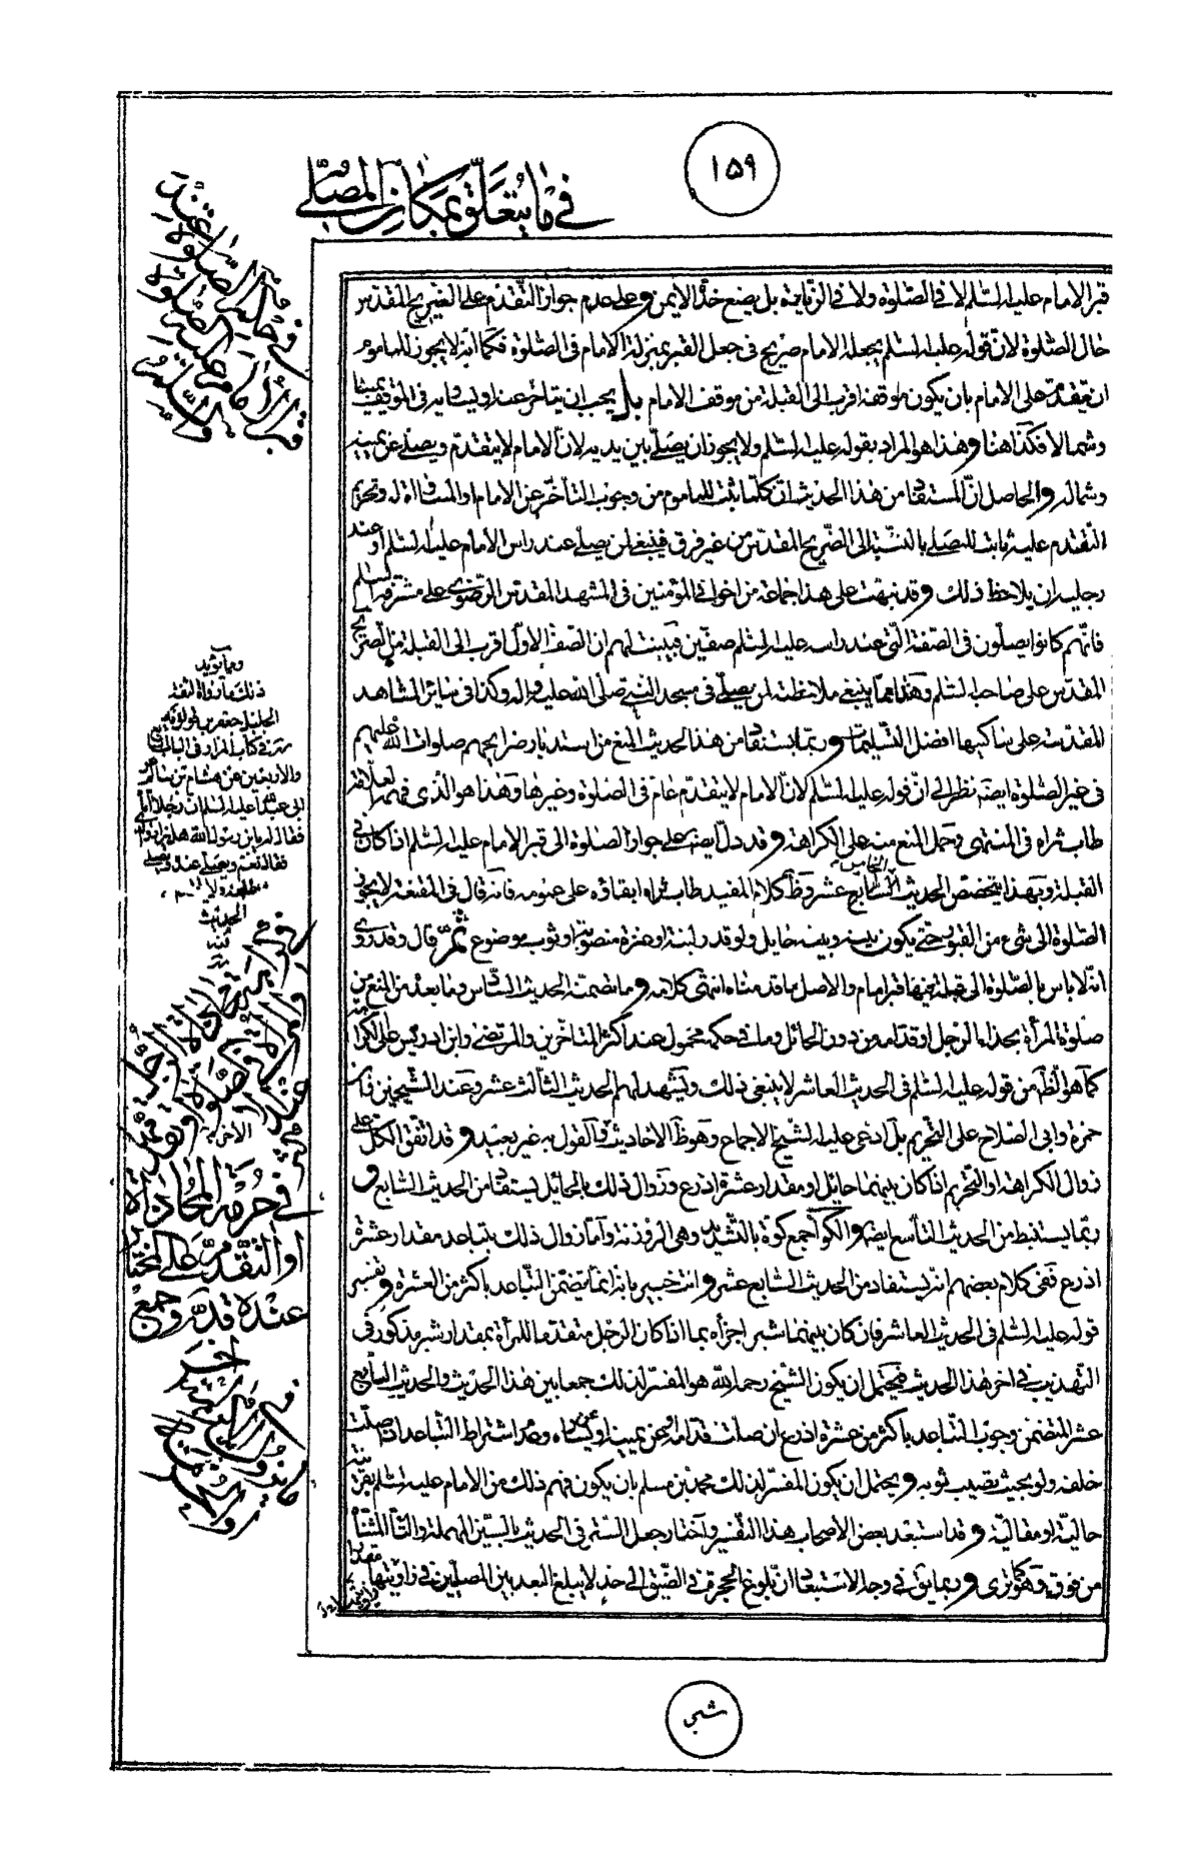 ١٥٩
في ما يتعلق بمكان المصلي
قبر الامام عليه السلم لا في الصلوة ولا في الزيارة بل يضع خده الايمن وعلى عدم جواز التقدم على الضريح المقدس
حال الصلوة لان قوله عليه السلم يجعله الامام صريح في جعل القبر بمنزلة الامام في الصلوة فكما انه لا يجوز للماموم
ان يتقدم على الامام بان يكون موقفه اقرب الى القبلة من موقف الامام بل يجب ان يتاخر عنه او يساويه في الموقف يمينا
وشمالا فكذا هنا وهذا هو المراد بقوله عليه السلم ولا يجوز ان يصلي بين يديه لان الامام لا يتقدم ويصلي عن يمينه
وشماله والحاصل ان المستفاد من هذا الحديث ان كلما ثبت للماموم من وجوب التأخر عن الامام او المساواة له وتحريم
التقدم عليه ثابت للمصلي بالنسبة الى الضريح المقدس من غير فرق فينبغي لمن يصلي عند راس الامام عليه السلم او عند
رجليه ان يلاحظ ذلك وقد نبهت على هذا جماعة من اخواني المؤمنين في المشهد المقدس الرضوي على مشرفه السلم
فانهم كانوا يصلون في الصفة التي عند راسه عليه السلم صفين فبينت لهم ان الصف الاول اقرب الى القبلة من الضريح
المقدس على صاحبه السلم وهذا مما ينبغي ملاحظته لمن يصلي في مسجد النبي صلى الله عليه واله وكذا في سائر المشاهد
المقدسة على ساكنيها افضل التسليمات وربما يستفاد من هذا الحديث المنع من استدبار ضرايحهم صلوات الله عليهم
في غير الصلوة ايضا نظرا الى ان قوله عليه السلم لان الامام لا يتقدم عام في الصلوة وغيرها وهذا هو الذي فهمه العلامة
طاب ثراه في المنتهى وحمل المنع منه على الكراهة وقد دل ايضا على جواز الصلوة الى قبر الامام عليه السلم اذا كان في
القبلة وبهذا يتخصص الحديث الخامس عشر وظ كلام المفيد طاب ثراه ابقاؤه على عمومه فانه قال في المقنعة لا يجوز
الصلوة الى شيء من القبور حتى يكون بينه وبينه حايل ولو قدر لبنة او عنزة منصوبة او ثوب موضوع ثم قال وقد روي
انه لا باس بالصلوة الى قبلة فيها قبر امام والاصل ما قدمناه انتهى كلامه وما تضمنه الحديث السادس وما بعده من المنع من
صلوة المرأة بحذاء الرجل او قدامه من دون الحائل وما في حكمه محمول عند اكثر المتاخرين والمرتضى وابن ادريس على الكراهة
كما هو الظ من قوله عليه السلم في الحديث العاشر لا ينبغي ذلك ويشهد لهم الحديث الثالث عشر وعند الشيخين وابن
حمزة وابي الصلاح على التحريم بل ادعى عليه الشيخ الاجماع وهو ظ الاحاديث فالقول به غير بعيد وقد اتفق الكل على
زوال الكراهة او التحريم اذا كان بينهما حائل او مقدار عشرة اذرع وزوال ذلك بالحائل يستفاد من الحديث السابع و
ربما يستنبط من الحديث التاسع ايضا والكوا جمع كوة بالتشديد وهي الروزنة واما زوال ذلك بتباعد مقدار عشرة
اذرع ففي كلام بعضهم انه يستفاد من الحديث السابع عشر وانت خبير بانه انما يتضمن التباعد باكثر من العشرة وتفسير
قوله عليه السلم في الحديث العاشر فان كان بينهما شبر اجزأه بما اذا كان الرجل متقدما للمرأة بمقدار شبر مذكور في
التهذيب في اخر هذا الحديث فيحتمل ان يكون الشيخ رحمه الله هو المفسر لذلك جمعا بين هذا الحديث والحديث السابع
عشر المتضمن وجوب التباعد باكثر من عشرة اذرع ان صلت قدامه او عن يمينه او عن يساره وعدم اشتراط التباعد اذا صلت
خلفه ولو بحيث تصيب ثوبه ويحتمل ان يكون المفسر لذلك محمد بن مسلم بان يكون فهم ذلك من الامام عليه السلم بقرينة
حالية او مقالية وقد استبعد بعض الاصحاب هذا التفسير واختار جعل الستر في الحديث بالسين المهملة والتاء المثناة
من فوق وهو كما ترى وربما يق في وجه الاستبعاد ان بلوغ الحجرة في الضيق الى حد لا يبلغ البعد بين المصليين في زاويتها مقدار
في جواز الصلوة عند
قبر الامام عليه الصلوة
والسلم
ومما يؤيد
ذلك ما رواه الثقة
الجليل جعفر بن قولويه
في كتاب المزار في الباب
والاربعين عن هشام بن سالم
الى عبد الله عليه السلم ان رجلا اتى
فقال له يا بن رسول الله هل يزار والدك
فقال نعم ويصلي عنده
الحديث
في حرمة المحاذاة
او التقدم على المختار
عنده قده وجمع
اخر
شبر